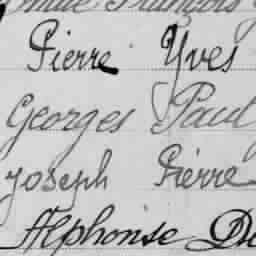 François
Pierre Yves
Georges Paul
Joseph Pierre
Alphonse